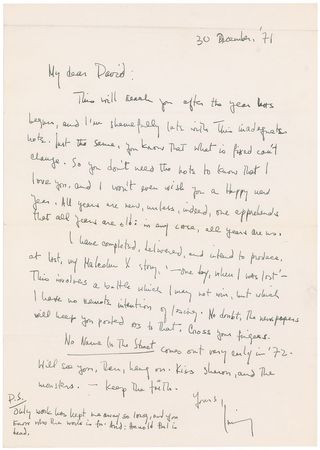 30 December, '71
My dear David:
This will reach you after the year has
begun, and I'm shamefully late with this inadequate
note. But the same, you know that what is fixed can't
change. So you don't need the note to know that I
love you, and I won't even wish you a Happy new
Year. All years are new, unless, indeed, one apprehends
that all years are old: in any case, all years are us.
I have completed, delivered, and intend to produce,
at last, my Malcolm X story, '—one day, when I was lost'—
This involves a battle which I may not win, but which
I have no remote intention of losing. No doubt, the newspapers
will keep you posted as to that. Cross your fingers.
No Name in the Street comes out very early in '72.
Will see you, then, hang on. Kiss Sharon, and the
monsters. — Keep the faith.
Yours,
P.S.
Only work has kept me away so long, and you
know who the work is for. And: Arnold is
dead.